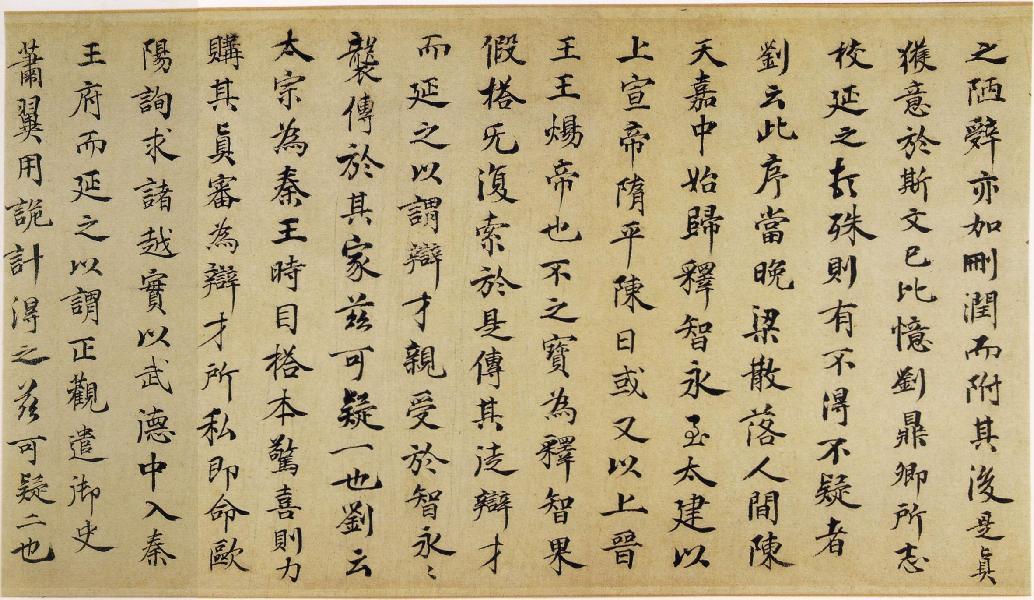 之陋辭亦加刪潤而附其後是真
獲意於斯文已比憶劉鼎卿所志
校延之㪽殊則有不得不疑者
劉云此序當晚梁散落人間陳
天嘉中始歸釋智永至太建以
上宣帝隋平陳日或又以上晉
王王煬帝也不之寶為釋智果
假搨旡復索於是傳其法辯才
而延之以謂辯才親受於智永〻
襲傳於其家茲可疑一也劉云
太宗為秦王時目搨本驚喜則力
購其真審為辯才所私即命歐
陽詢求諸越實以武德中入秦
王府而延之以謂正觀遣御史
蕭翼用詭計得之茲可疑二也